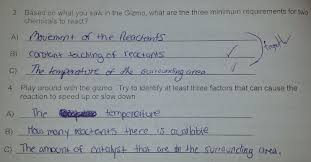 3 Based on what you saw in the Gizmo, what are the three minimum requirements for two
chemicals to react?
A) Movement of the Reactants
B) constant touching of reactants
C) The temperature of the surrounding area
4 Play around with the gizmo. Try to identify at least three factors that can cause the
reaction to speed up or slow down
A) The temperature
B) How many reactants there is available
C) The amount of catalyst that are to the surrounding area.